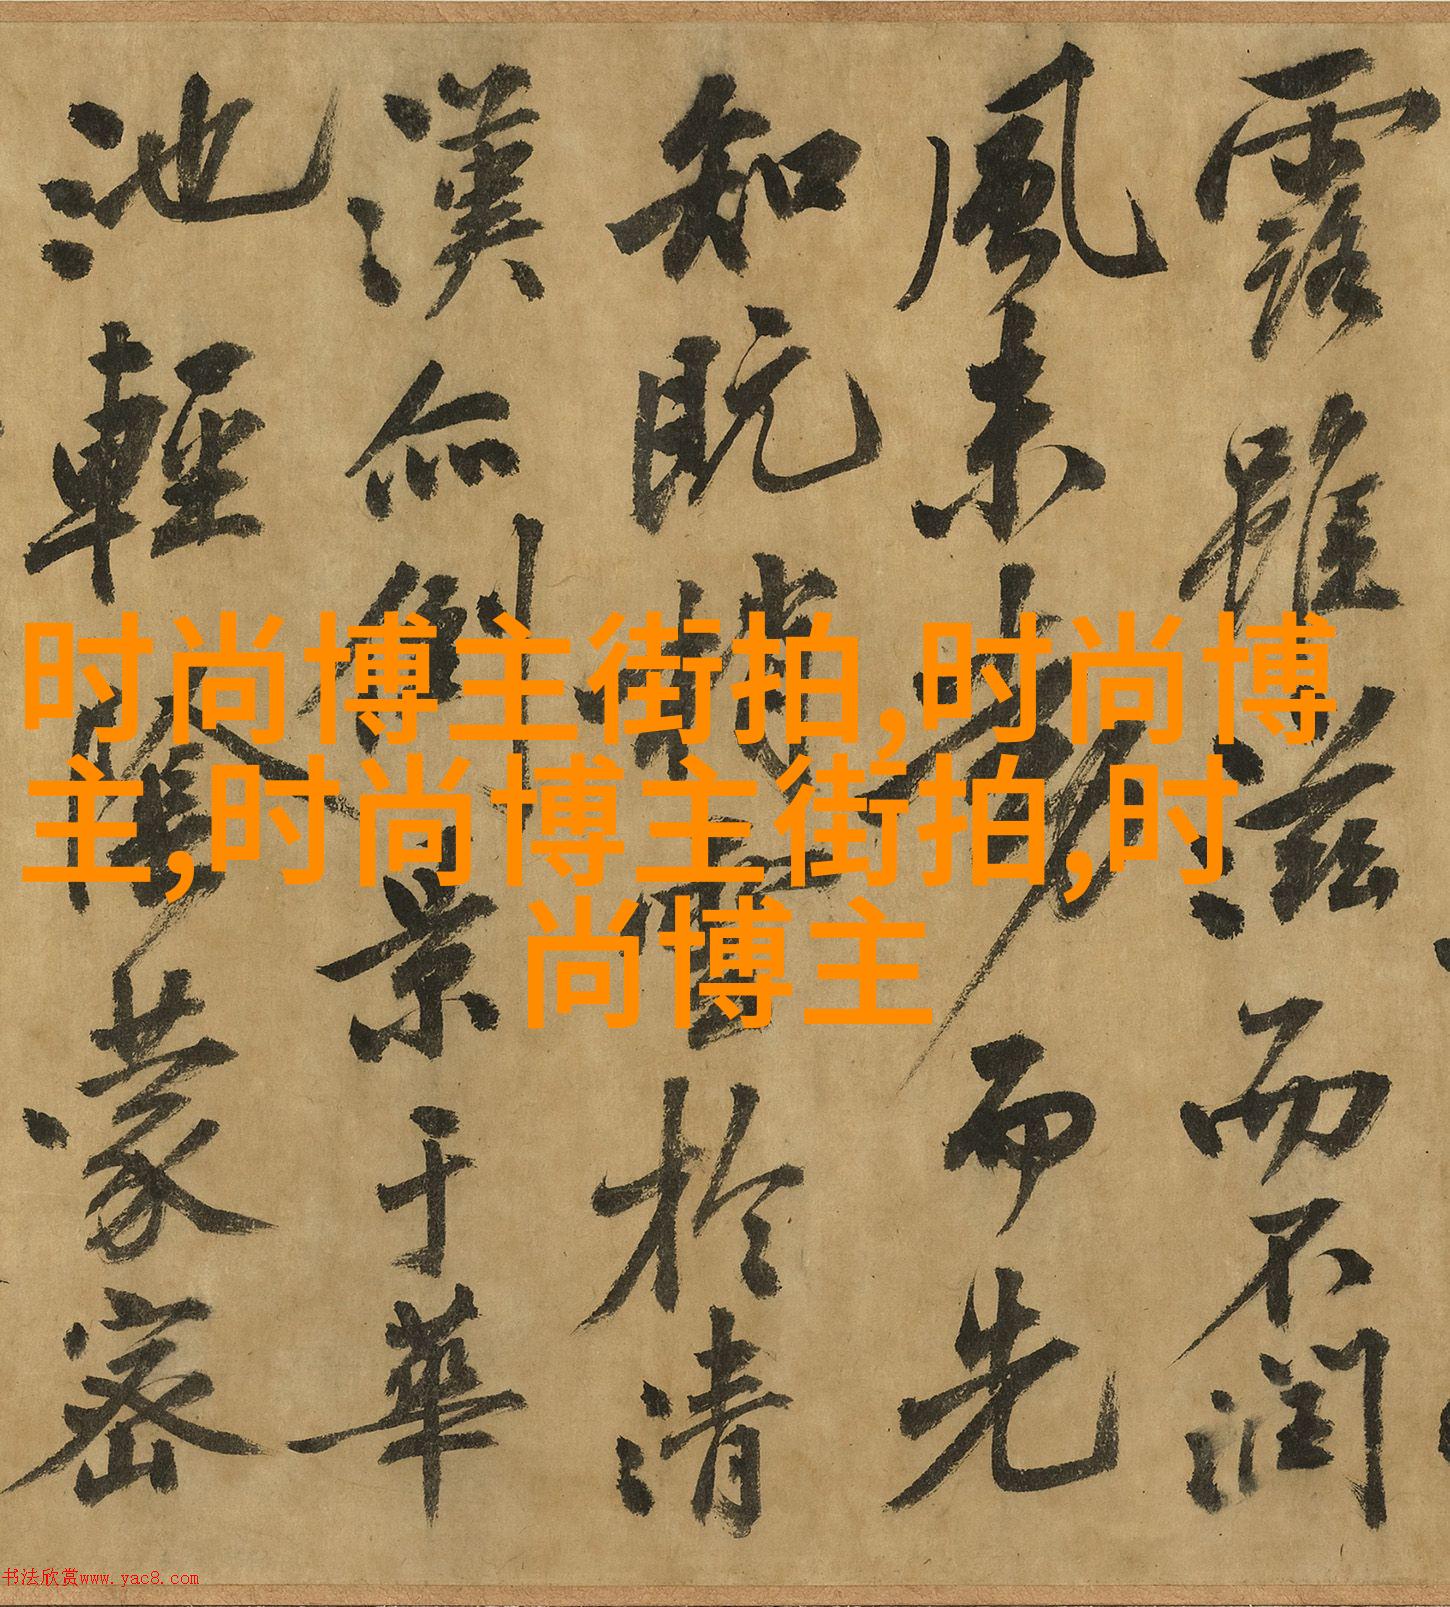 露雖滋而不潤
風未動而先
知既梢雲於清
漢亦倒景于華
池輕陰蒙密
时尚博主街拍,时尚博
主,时尚博主街拍,时
尚博主
书法欣赏www.yac8.com